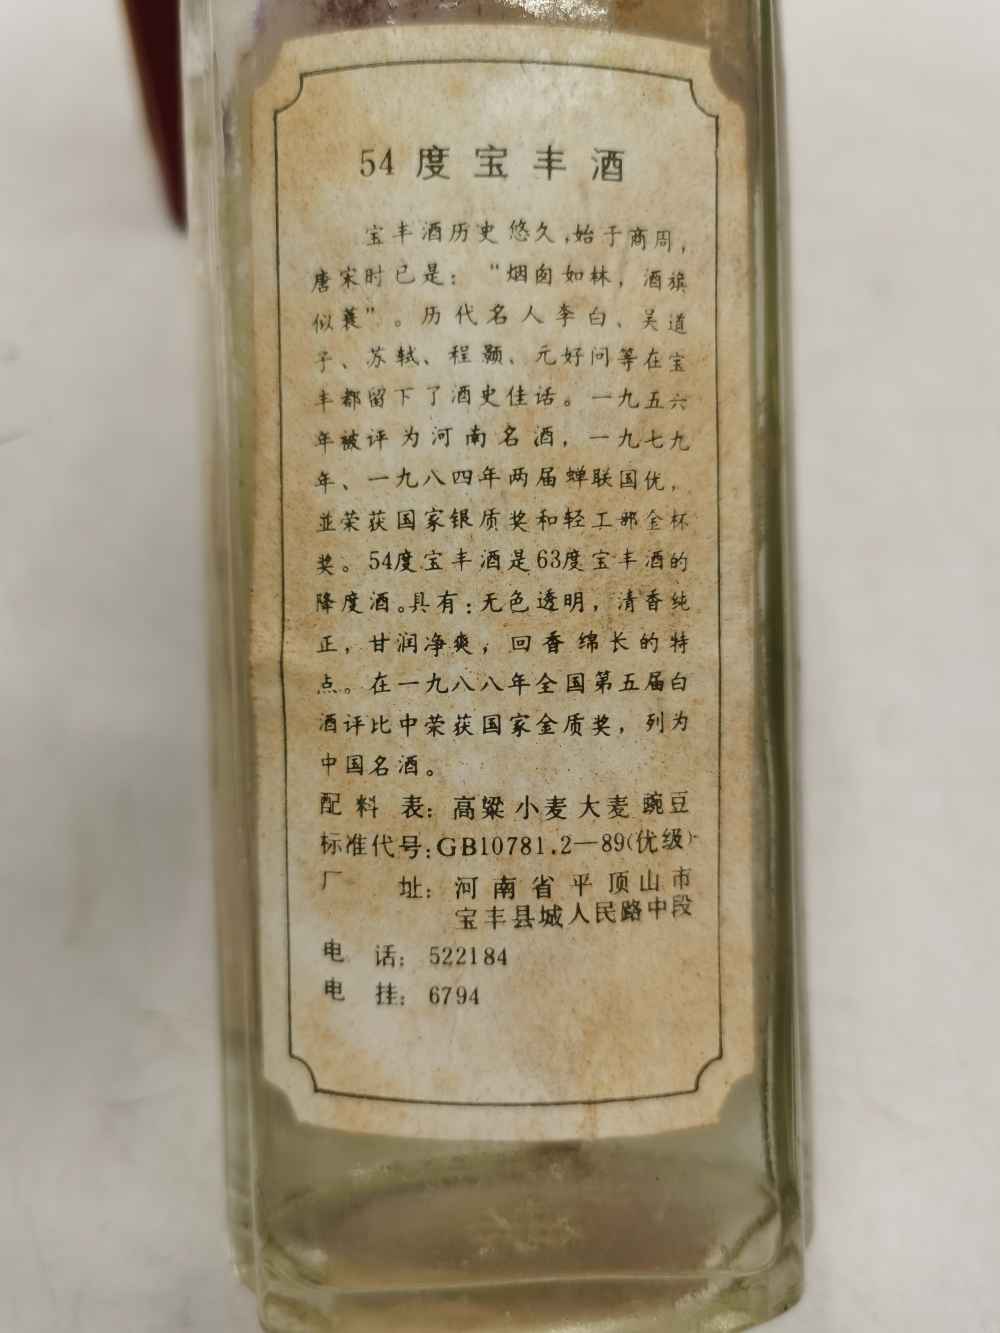 54度宝丰酒
宝丰酒历史悠久,始于商周,
唐宋时已是:“烟囱如林,酒旗
似蓑”。历代名人李白、吴道
子、苏轼、程颢、元好问等在宝
丰都留下了酒史佳话。一九五六
年被评为河南名酒,一九七九
年、一九八四年两届蝉联国优,
並荣获国家银质奖和轻工部金杯
奖。54度宝丰酒是63度宝丰酒的
降度酒。具有:无色透明,清香纯
正,甘润净爽,回香绵长的特
点。在一九八八年全国第五届白
酒评比中荣获国家金质奖,列为
中国名酒。
配料表:高粱小麦大麦豌豆
标准代号:GB10781.2—89(优级)
厂 址:河南省平顶山市
宝丰县城人民路中段
电 话:522184
电 挂:6794